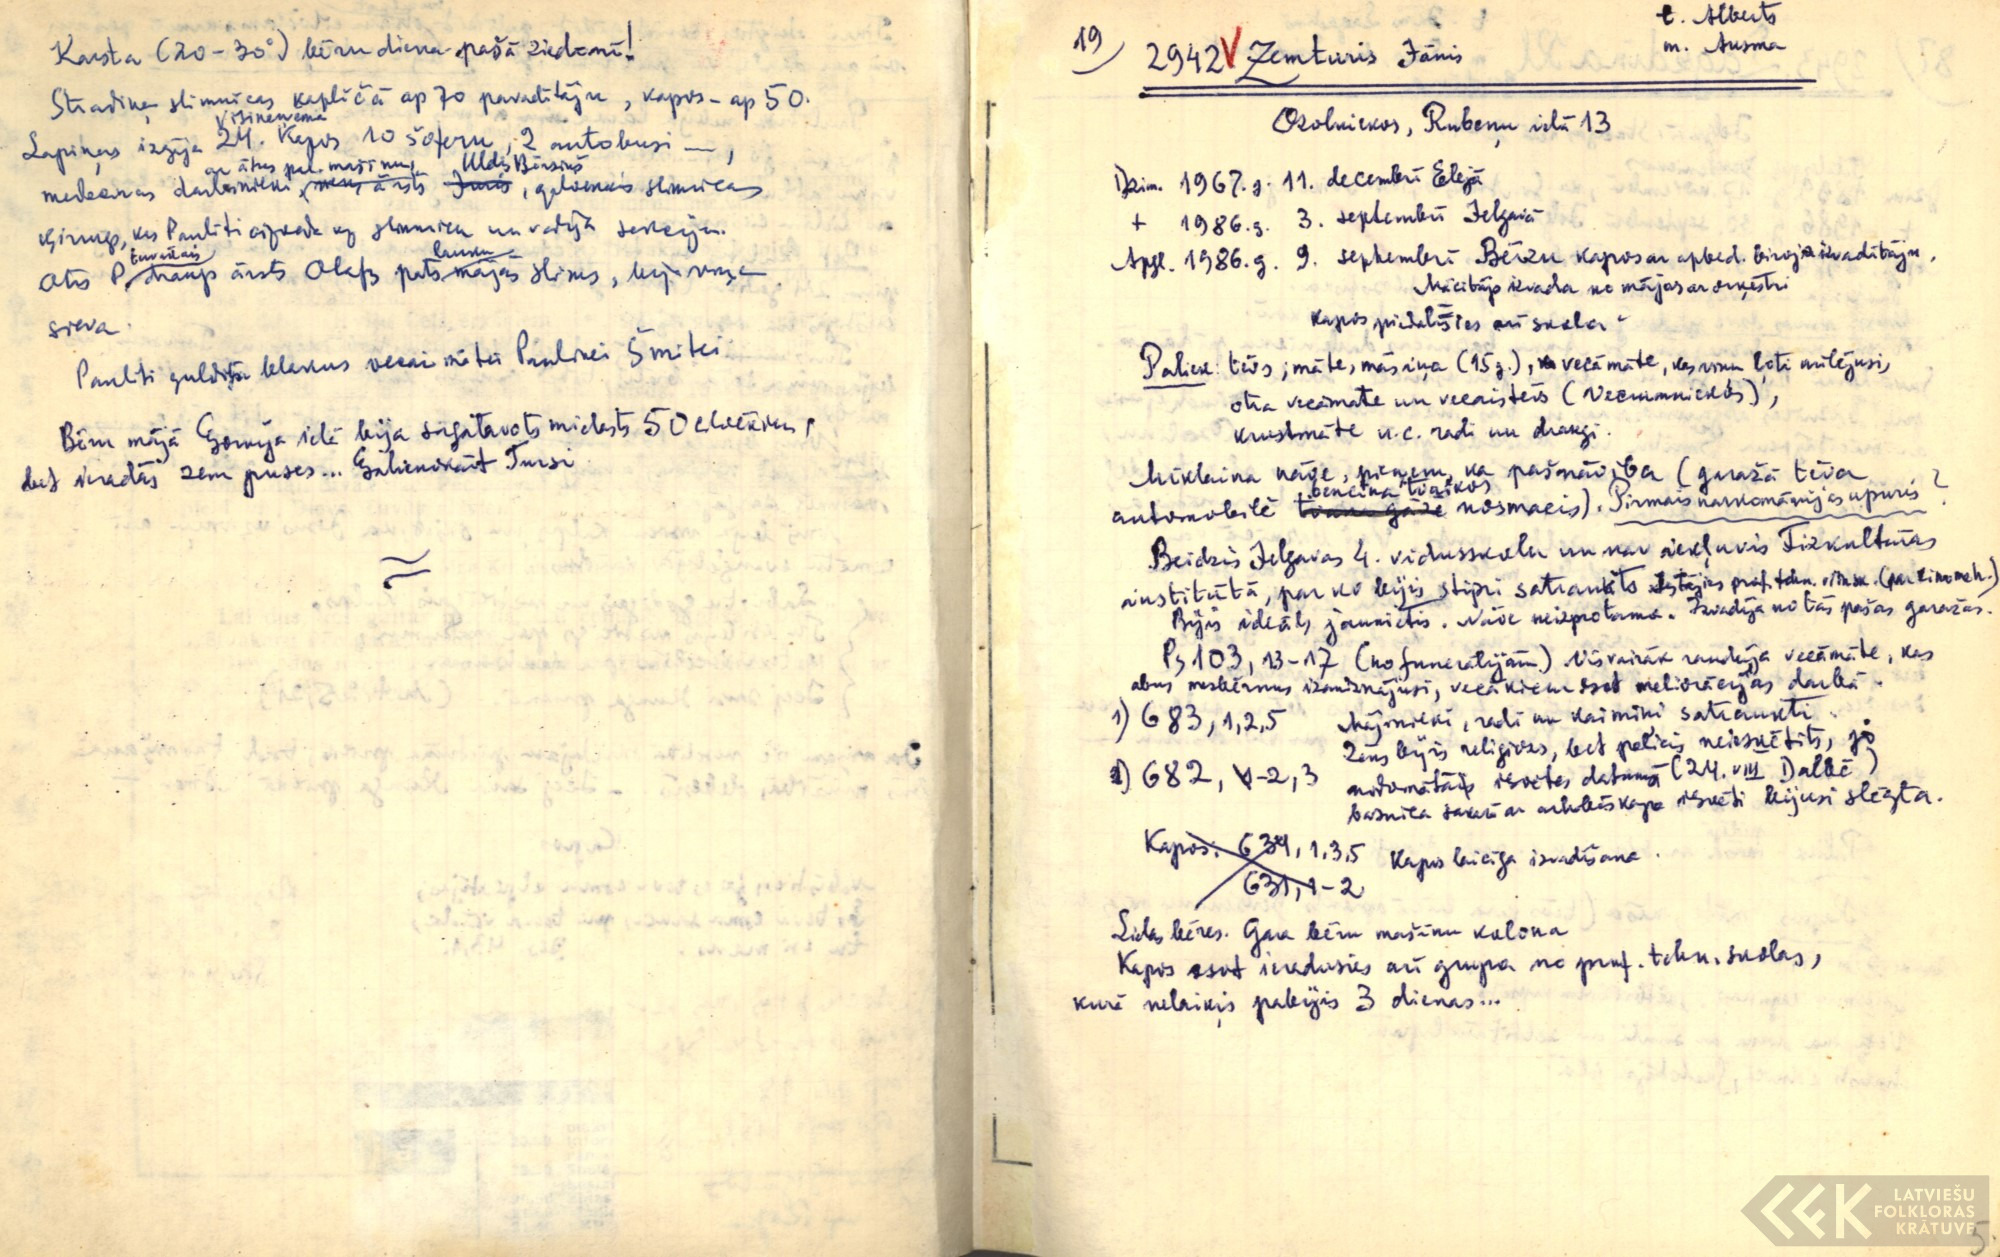 Karsta (20-30°) bēru diena pašā ziedonī!
Stradiņa slimnīcas kapličā ap 70 pavadītāju, kapos - ap 50.
Visinevemā
Lapiņas izgāja 24. Kapos 10 šoferu, 2 autobusi —,
ar ātrās pal. mašīnu, Uldis Bērziņš
medicīnas darbinieki, ārsts Juris, galvenais slimnīcas
ķirurgs, kas Paulīti aizveda uz slimnīcu un vadīja sekciju.
tuvākais
Otrs P. draugs ārsts Olafs pats mājās slims, bija viņa
sieva.
Paulīti guldīja blakus vecai mātei Paulīnei Šmitei
Bēru mājā ielā bija sagatavots mielasts 50 cilvēkiem,
bet ieradās zem puses... Tursi
19) 2942 V Zemturis Jānis
t. Alberts
m. Ausma
Ozolniekos, Rubeņu ielā 13
Dzim. 1967. g. 11. decembrī Elejā
+ 1986. g. 3. septembrī Jelgavā
Apgl. 1986. g. 9. septembrī Bērzu kapos ar apbed. biroja izvadītāju.
Mācītājs izvada no mājas ar orķestri
Kapos piedalīsies arī skola -
Paliek: tēvs, māte, māsiņa (15 g.), vecāmāte, kas viņu ļoti mīlējusi,
otra vecāmāte un vecaistēvs (Vecumniekos),
krustmāte u.c. radi un draugi.
Mīklaina nāve, pieņem, ka pašnāvība (garažā tēva
benzīna tvaikos
automobilī tvana gāzē nosmacis). Pirmais narkomānijas upuris?
Beidzis Jelgavas 4. vidusskolu un nav iekļuvis Fizkultūras
institūtā, par ko bijis stipri satraukts. Iestājies prof. tehn. vidussk. (par kinomeh.)
Bijis ideāls jaunietis. Nāve neizprotama. Izvadīja no tās pašas garažas.
Ps 103, 13-17 (no funerālijām) Visvairāk raudāja vecāmāte, kas
abus mazbērnus izauklējusi, vecākiem esot meliorācijas darbā.
1) 683, 1,2,5 Mājinieki, radi un kaimiņi satraukti.
Zēns bijis reliģiozs, bet palicis neiesvētīts, jo
2) 682, 1-2,3 iesvētes datumā (24. VIII Dalbē)
baznīca sakarā ar arhibīskapa iesvēti bijusi slēgta.
Kapos: 634, 1,3,5 Kapos laicīga izvadīšana.
631, 1-2
Lielas bēres. Gara bēru mašīnu kolona
Kapos esot ieradusies arī grupa no prof. tehn. skolas,
kurā nelaiķis pabijis 3 dienas...
LATVIEŠU
FOLKLORAS
KRĀTUVE
5.